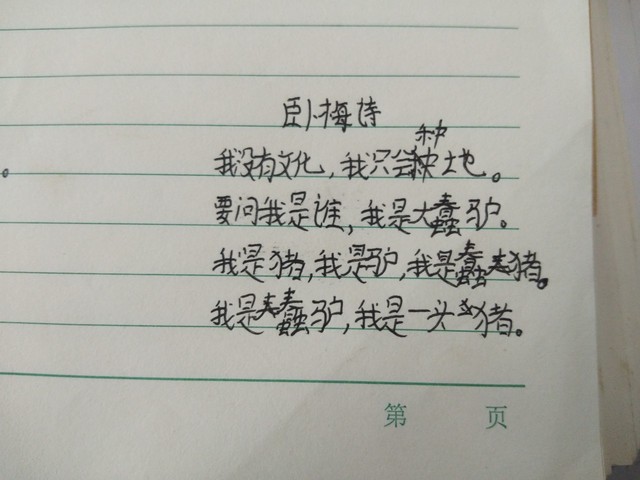 卧梅诗
我没有文化，我只会种地。
要问我是谁，我是大蠢驴。
我是猪，我是驴，我是蠢猪。
我是蠢驴，我是一头猪。
第 页